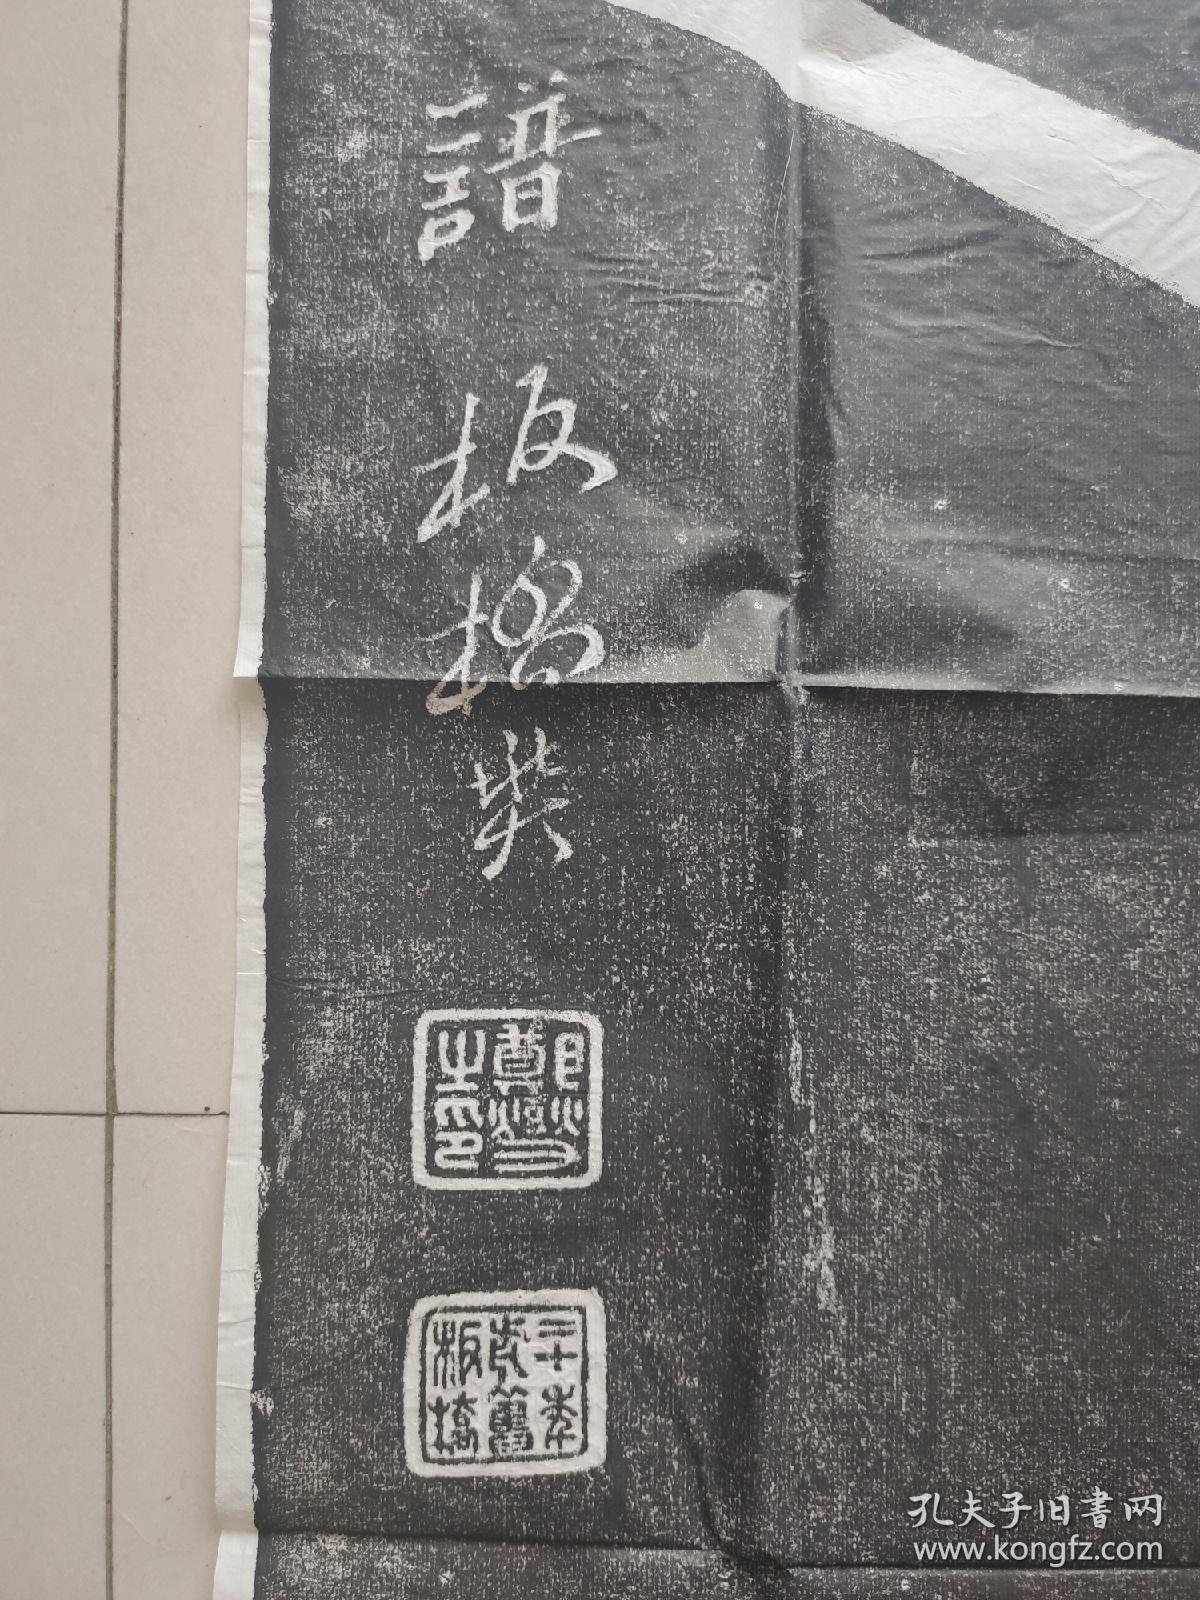 譜 板橋燮
鄭燮之印
二十年前舊板橋
孔夫子旧書网
www.kongfz.com